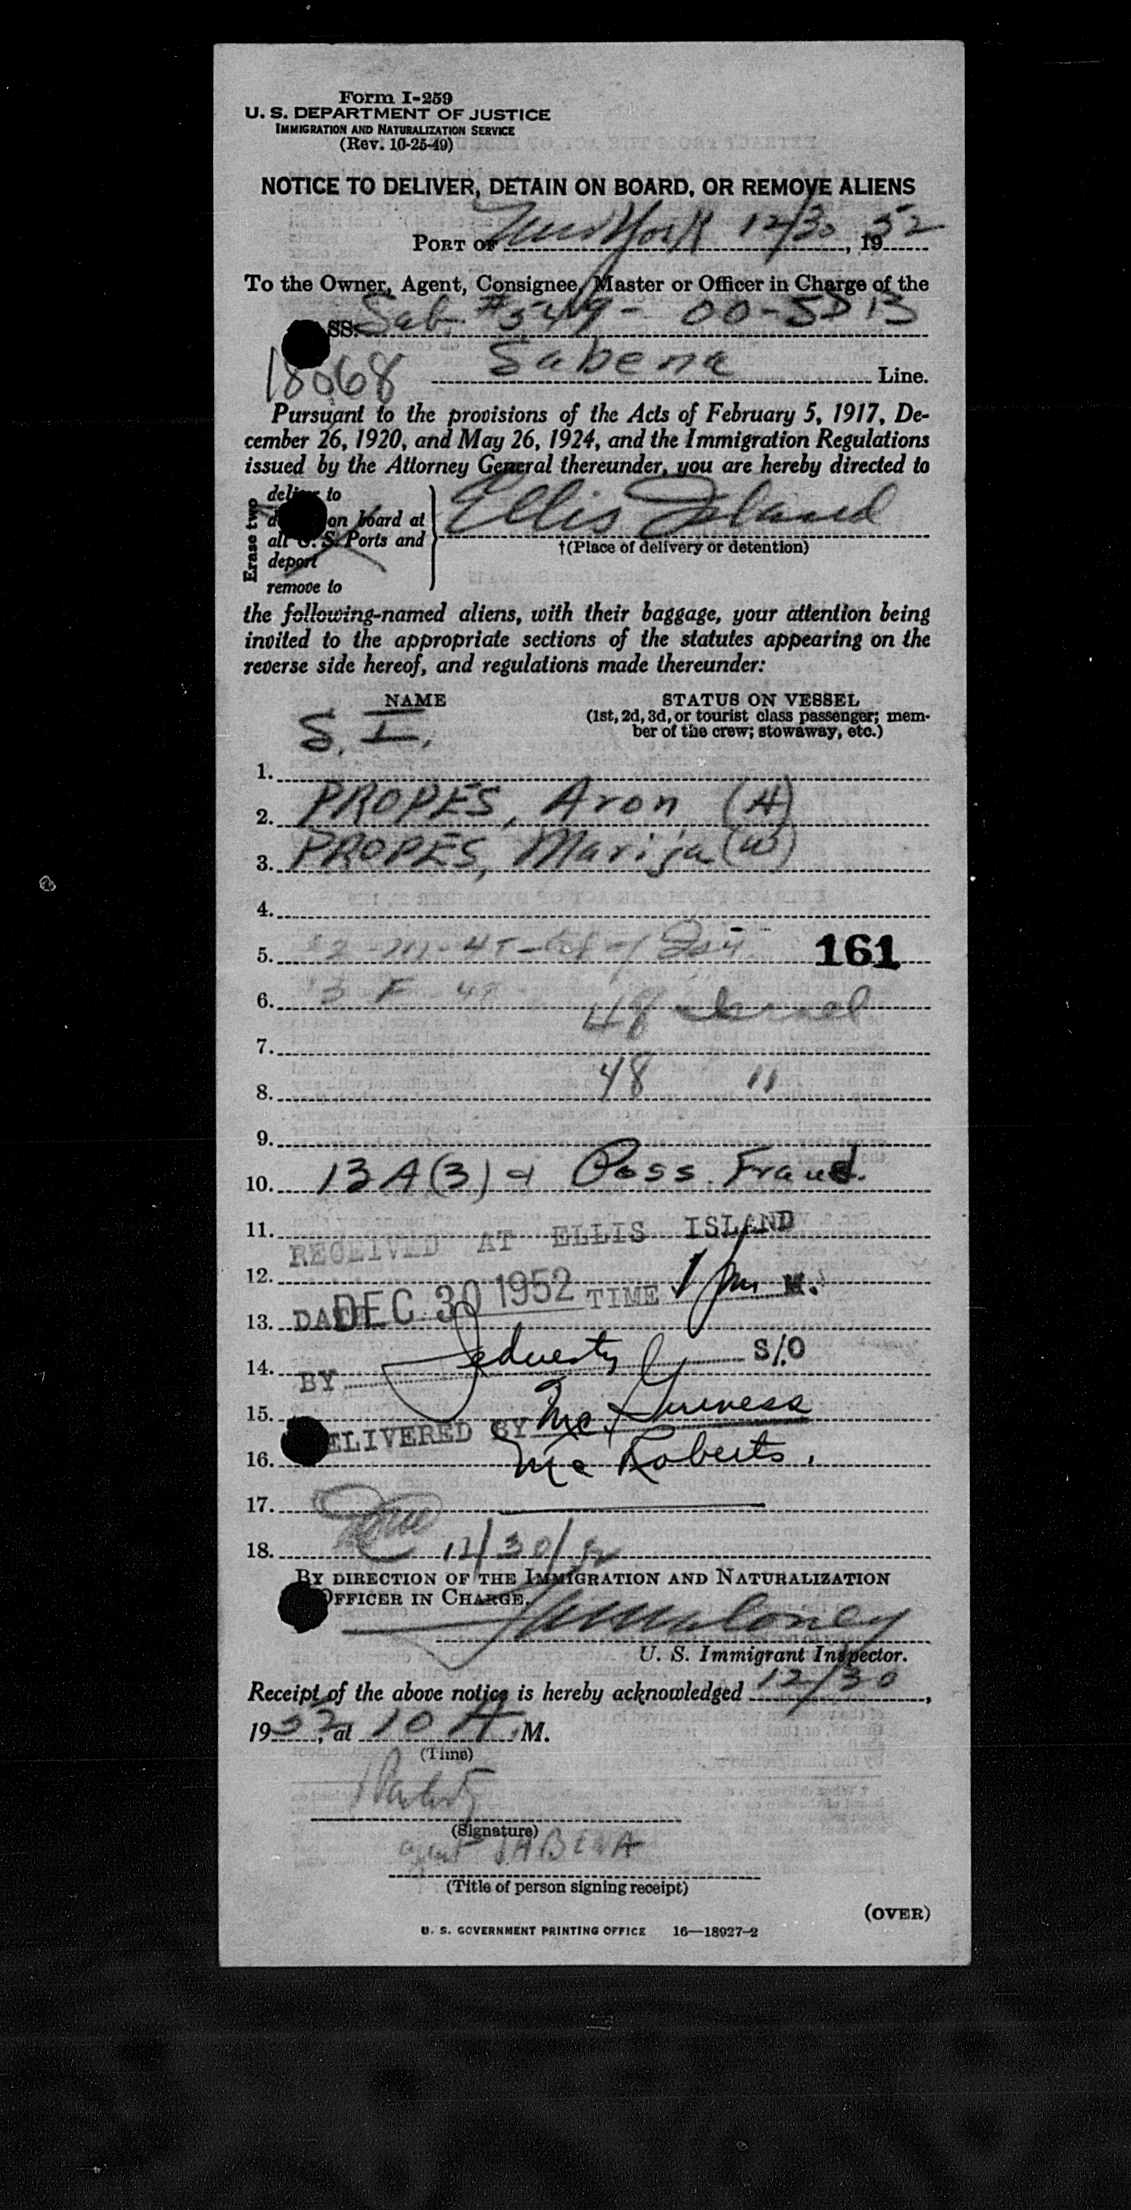 Form I-259
U. S. DEPARTMENT OF JUSTICE
IMMIGRATION AND NATURALIZATION SERVICE
(Rev. 10-25-49)
NOTICE TO DELIVER, DETAIN ON BOARD, OR REMOVE ALIENS
PORT OF New York 12/30, 1952
To the Owner, Agent, Consignee, Master or Officer in Charge of the
SS. Sab. #549 - OO-SDB
18068 Sabena Line.
Pursuant to the provisions of the Acts of February 5, 1917, De-
cember 26, 1920, and May 26, 1924, and the Immigration Regulations
issued by the Attorney General thereunder, you are hereby directed to
Erase two
deliver to
on board at
all U. S. Ports and
deport
remove to
Ellis Island
†(Place of delivery or detention)
the following-named aliens, with their baggage, your attention being
invited to the appropriate sections of the statutes appearing on the
reverse side hereof, and regulations made thereunder:
NAME STATUS ON VESSEL
(1st, 2d, 3d, or tourist class passenger; mem-
ber of the crew; stowaway, etc.)
S. I.
1.
2. PROPES, Aron (H)
3. PROPES, Marija (W)
4.
5. #2 - M - 45 161
6. 3 F 48
7. 48 Israel
8. 48 "
9.
10. 13A(3) & Poss. Fraud.
11. RECEIVED AT ELLIS ISLAND
12.
13. DATE DEC 30 1952 TIME 1 pm M.
14. BY S/O
15. DELIVERED BY Mc Guiness
16. Mc Roberts.
17.
18. 12/30/52
BY DIRECTION OF THE IMMIGRATION AND NATURALIZATION
OFFICER IN CHARGE.
Maloney
U. S. Immigrant Inspector.
Receipt of the above notice is hereby acknowledged 12/30,
1952, at 10 A. M.
(Time)
(Signature)
agent SABENA
(Title of person signing receipt)
(OVER)
U. S. GOVERNMENT PRINTING OFFICE 16—18927-2